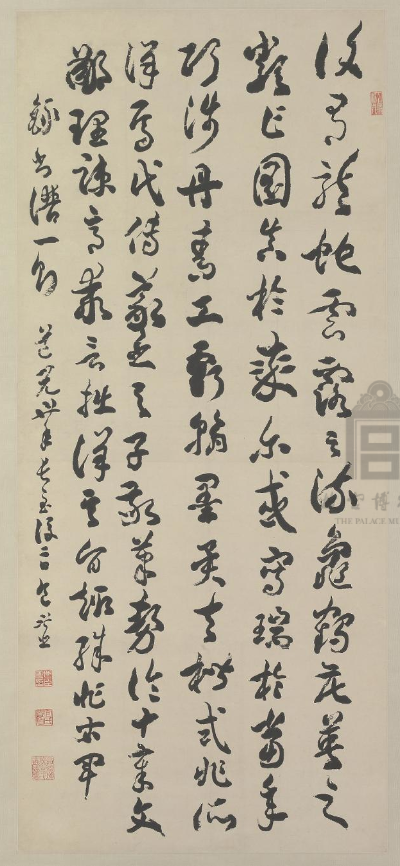 復有龍蛇雲露之流龜鶴花英之
類乍圖真於率爾或寫瑞於當年
巧涉丹青工虧翰墨異夫楷式非所
詳焉代傳羲之與子敬筆勢論十章文
鄙理疎意乖言拙詳其旨趣殊非右軍
錄書譜一節 道光 年長至後二日
THE PALACE MU